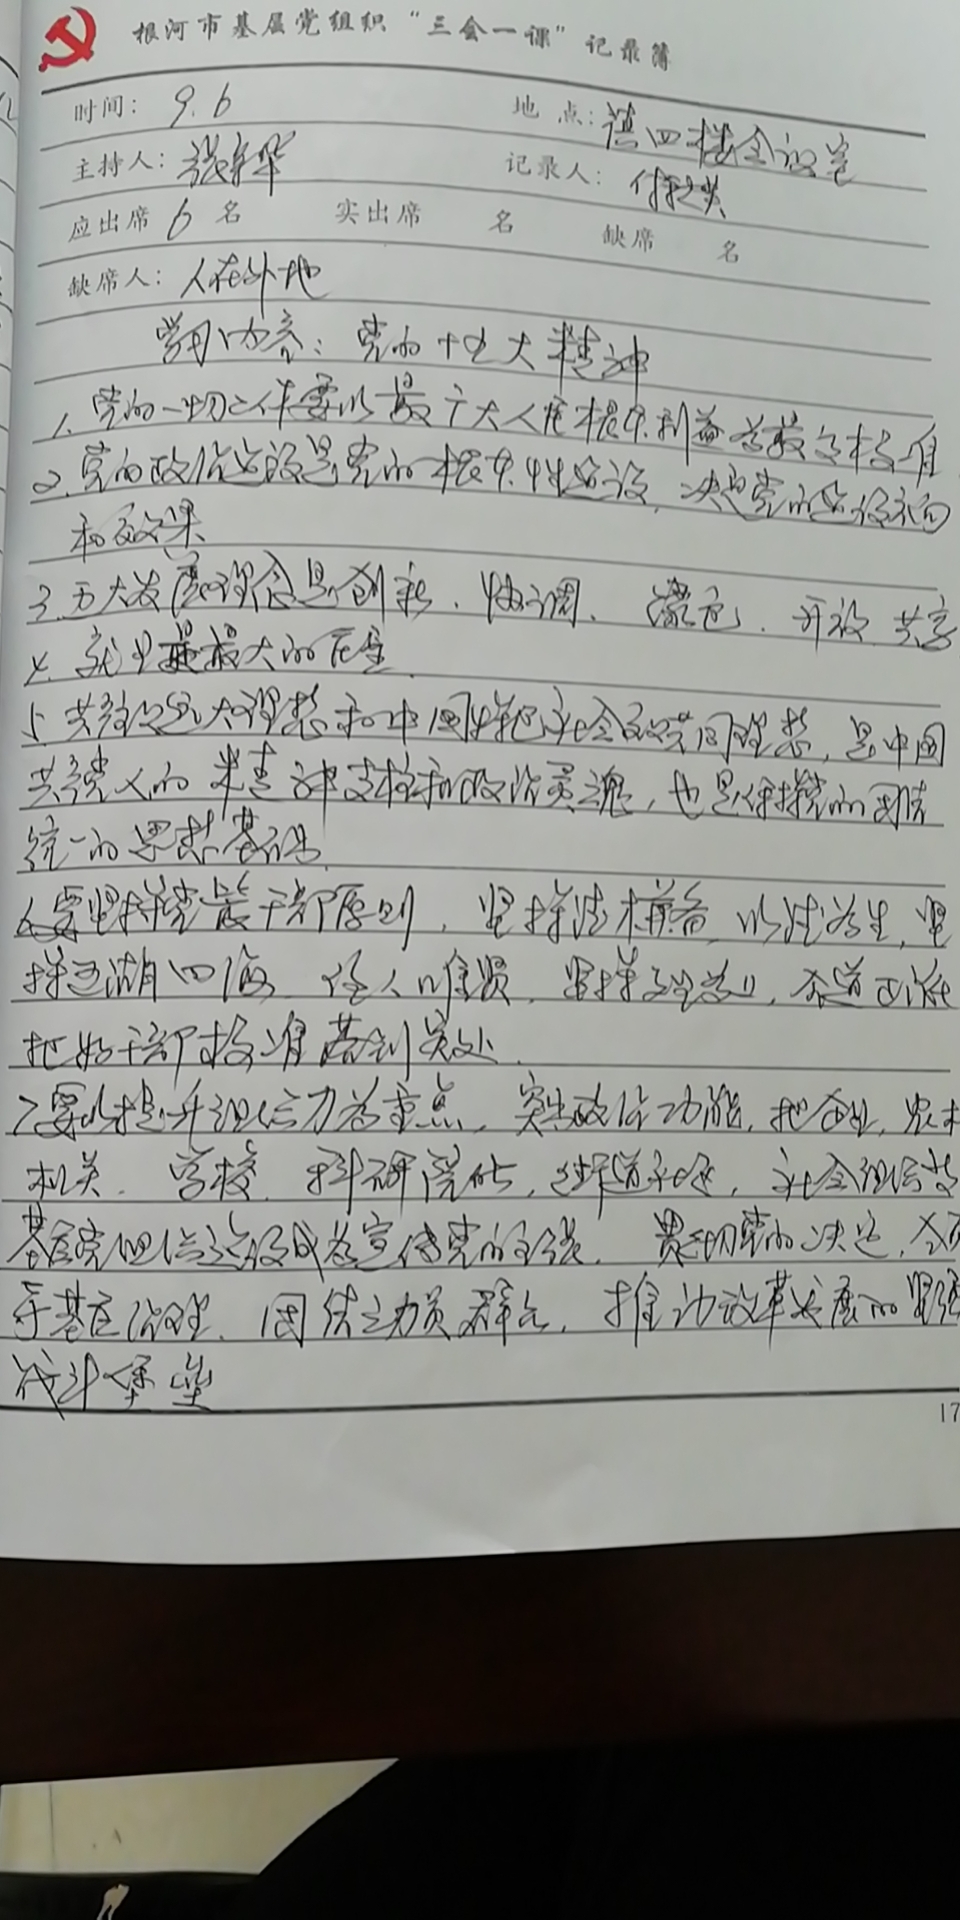 根河市基层党组织“三会一课”记录簿
时间： 9.6 地点： 镇四楼会议室
主持人： 张 华 记录人： 付
应出席 6 名 实出席 名 缺席 名
缺席人： 人在外地
学习内容：党的十九大精神
1. 党的一切工作要以最广大人民根本利益为最高标准
2. 党的政治建设是党的根本性建设，决定党的建设方向
和效果
3. 五大发展理念是创新、协调、绿色、开放 共享
4. 就业是最大的民生
5. 共产主义远大理想和中国特色社会主义共同理想，是中国
共产党人的精神支柱和政治灵魂，也是保持党的团结
统一的思想基础
6. 要坚持党管干部原则，坚持德才兼备、以德为先，坚
持五湖四海、任人唯贤，坚持事业为上、公道正派
把好干部标准落到实处
7 要以提升组织力为重点，突出政治功能，把企业、农村
机关、学校、科研院所、街道社区、社会组织等
基层党组织建设成为宣传党的主张、贯彻党的决定、领
导基层治理、团结动员群众、推动改革发展的坚强
战斗堡垒
17